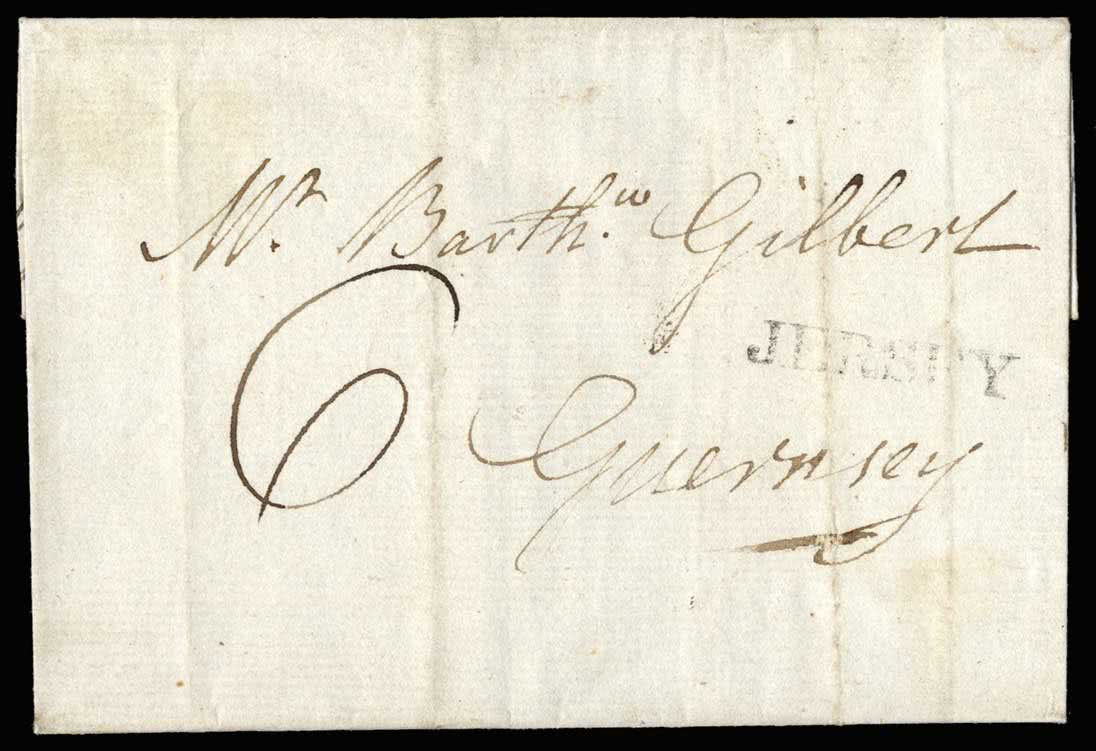 Mr. Barth.w Gilbert
6
JERSEY
Guernsey